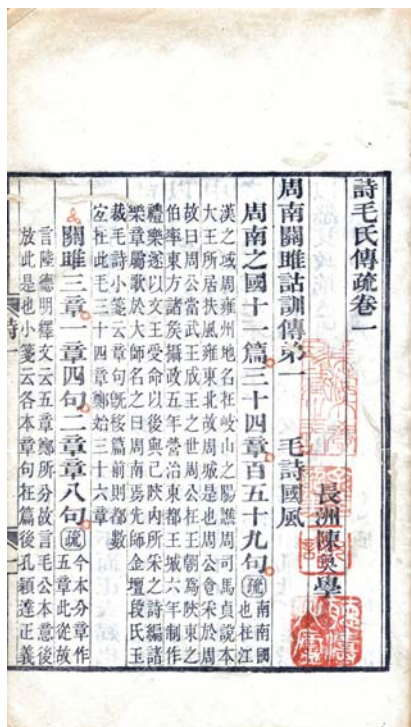 詩毛氏傳疏卷一
長洲陳奐學
周南關雎詁訓傳弟一　毛詩國風
周南之國十一篇三十四章百五十九句疏南南國也在江
漢之域周雍州地名在岐山之陽譙周司馬貞說本
大王所居扶風雍東北故周城是也周公食采於周
故曰周公當武王成王之世周公在王朝爲陝東之
伯率東方諸矦攝政五年營治東都王城六年制作
禮樂遂以文王受命以後與己陝內所采之詩編諸
樂章屬歌於大師名之曰周南焉先師金壇段氏玉
裁毛詩小箋云章句旣移篇前則都數
宐在此毛三十四章鄭始三十六章
關雎三章一章四句二章章八句疏今本分章作五章此從故
言陸德明釋文云五章鄭所分故言毛公本意後
放此是也小箋云各本章句在篇後孔穎達正義